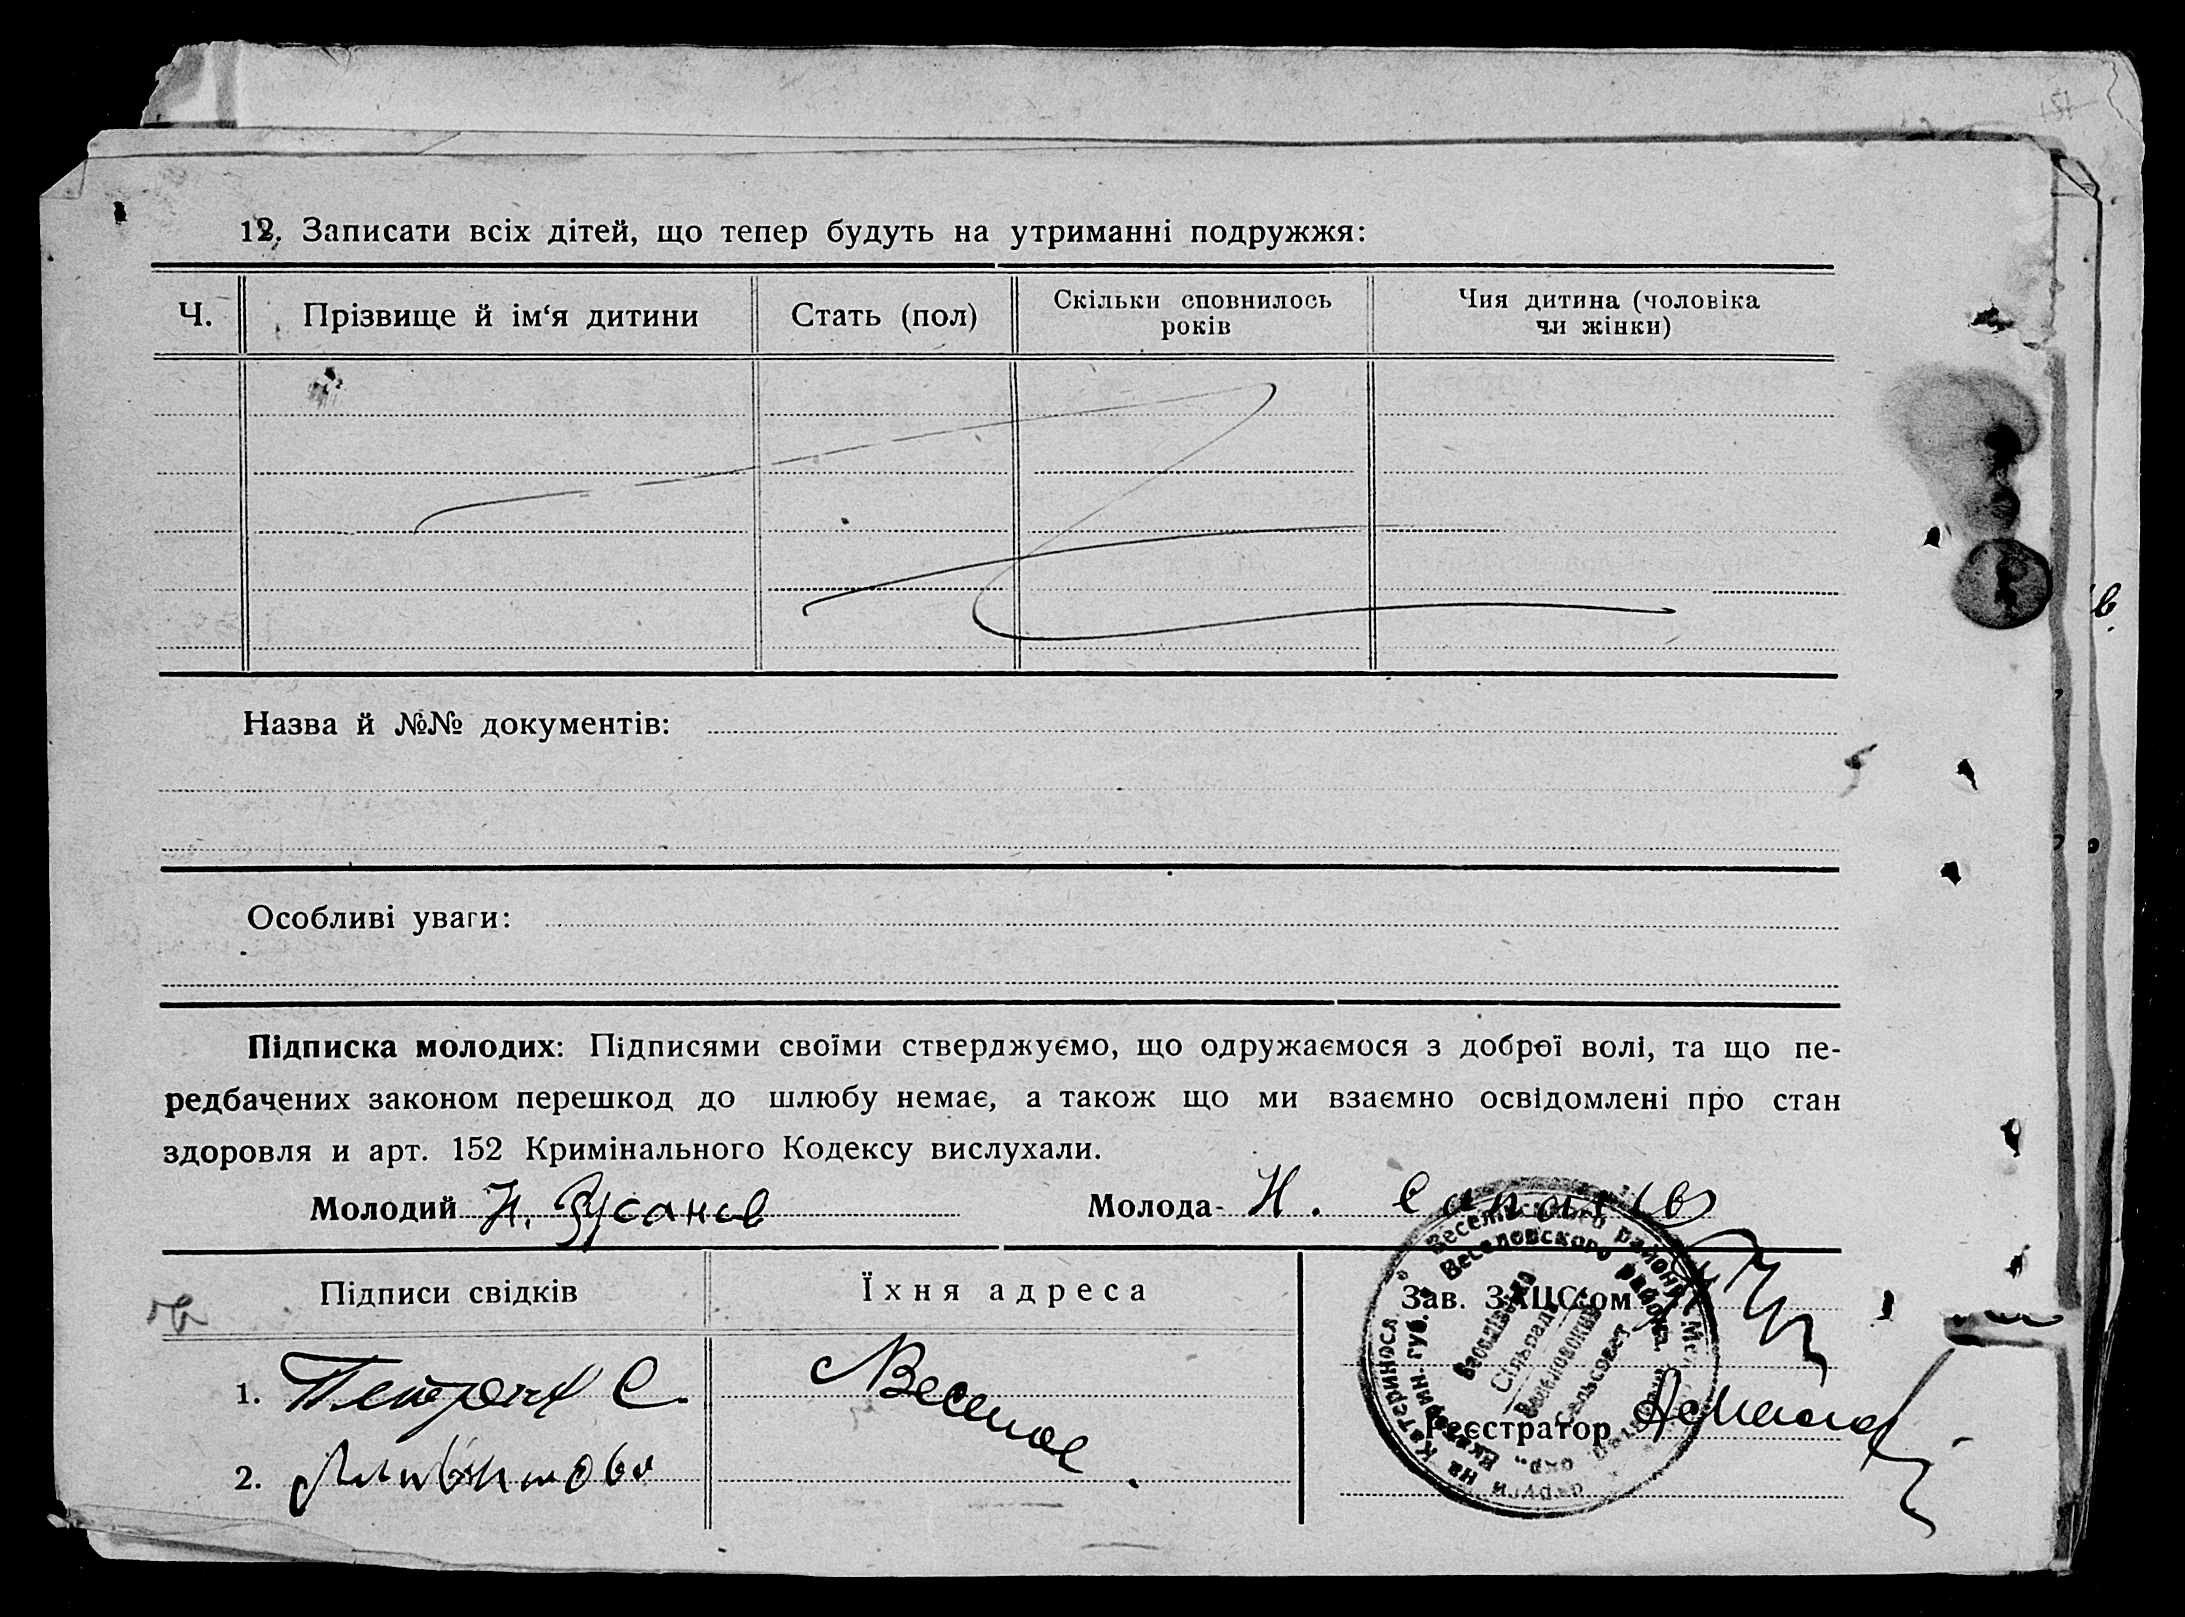 12. Записати всіх дітей, що тепер будуть на утриманні подружжя:
Ч. Прізвище й ім‘я дитини Стать (пол) Скільки сповнилось років Чия дитина (чоловіка чи жінки)
Назва й №№ документів:
Особливі уваги:
Підписка молодих: Підписями своїми стверджуємо, що одружаємося з доброї волі, та що пе-
редбачених законом перешкод до шлюбу немає, а також що ми взаємно освідомлені про стан
здоровля и арт. 152 Кримінального Кодексу вислухали.
Молодий Молода Н.
Підписи свідків Їхня адреса Зав. ЗАЦС‘ом
1. С. Веселое
Реєстратор
2.
Веселівського району
Веселовского района
Сільрада
Сельсовет
на Катериносл.
Екатерин. губ.